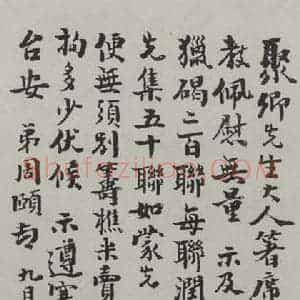 聚卿先生大人著席
教佩慰無量 示及
獵碣二百聯每聯潤
先集五十聯如蒙先
便無須別籌樵米賣
拘多少伏候 示遵
台安 弟周頤 九